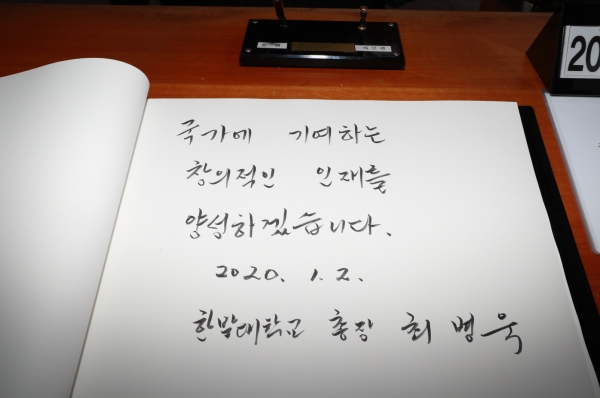 국가에 기여하는
창의적인 인재를
양성하겠습니다.
2020. 1. 2.
한밭대학교 총장 최 병 욱
20